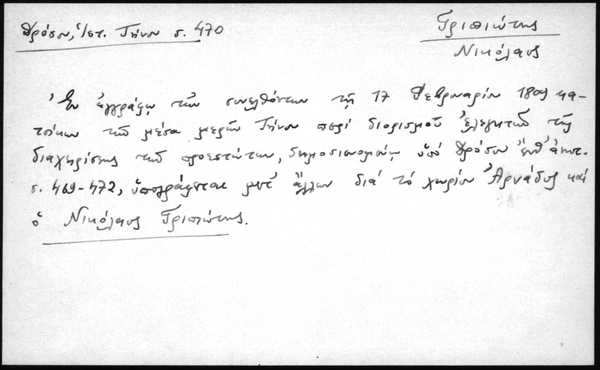 Δρόσου, Ἱστ. Τήνου σ. 470
Γριπιώτης
Νικόλαος
Ἐν ἐγγράφῳ τῶν συνελθόντων τῇ 17 Φεβρουαρίου 1809 κα-
τοίκων τῶν μέσα μερῶν Τήνου περὶ διορισμοῦ ἐλεγκτῶν τῆς
διαχειρίσεως τῶν προεστώτων, δημοσιευομένῳ ὑπὸ Δρόσου ἔνθ' ἀνωτ.
σ. 469-472, ὑπογράφεται μετ' ἄλλων διὰ τὸ χωρίον Ἀρνάδος καὶ
ὁ Νικόλαος Γριπιώτης.